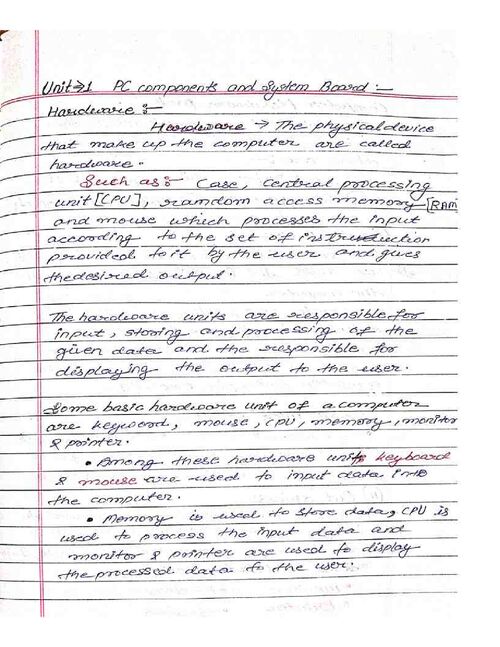 Unit→1 PC components and System Board :-
Hardware :-
Hardware → The physical device
that make up the computer are called
hardware.
Such as :- Case, Central processing
unit [CPU], ramdom access memory [RAM
and mouse which processes the input
according to the set of instruction
provided to it by the user and gives
the desired output.
The hardware units are responsible for
input, storing and processing of the
given data and the responsible for
displaying the output to the user.
Some basic hardware unit of a computer
are keyword, mouse, CPU, memory, monitor
& pointer.
• Among these hardware units keyboard
& mouse are used to input data into
the computer.
• Memory is used to store data, CPU is
used to process the input data and
monitor & pointer are used to display
the processed data to the user.